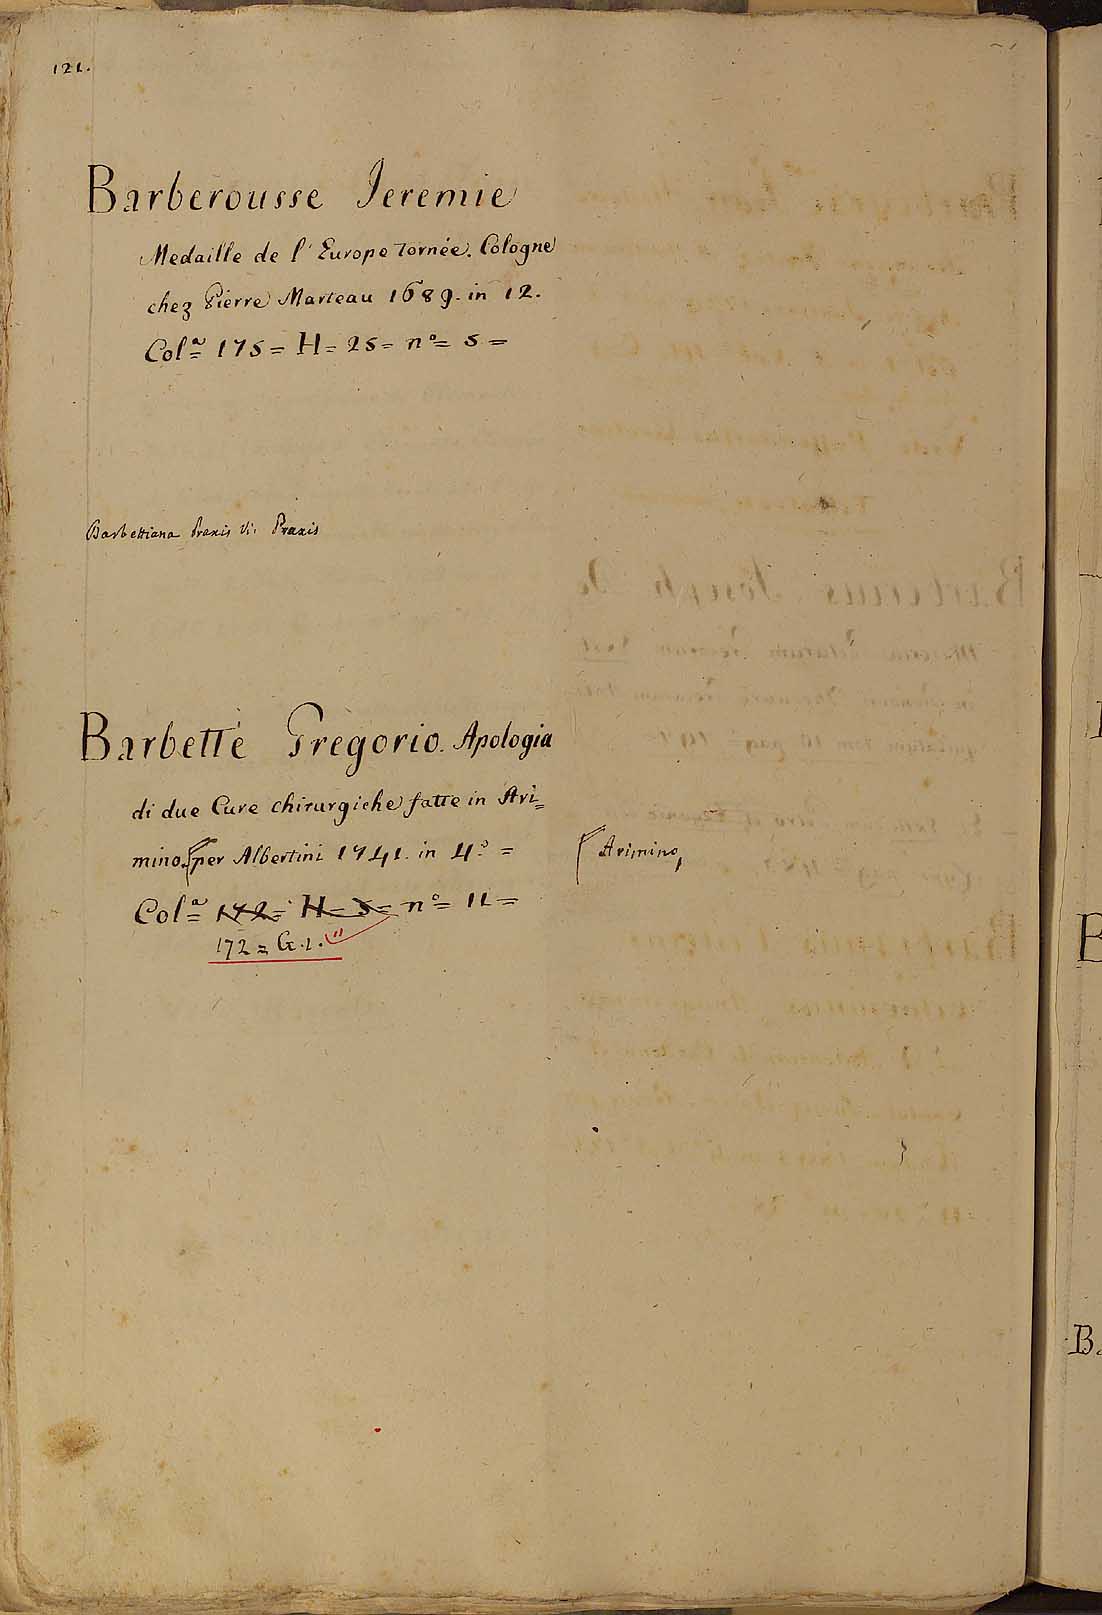 121.
Barberousse Jeremie
Medaille de l' Europe tornée. Cologne
chez Pierre Marteau 1689. in 12.
Col.ª 175 = H = 25 = n.º = 5 =
Barbettiana Praxis Vi: Praxis
Barbette Gregorio. Apologia
di due Cure chirurgiche fatte in Ari=
mino. per Albertini 1741. in 4.º =
Arimino,
Col.ª 172 = H = 5 = n.º = 11 =
172 = G. 1. 11